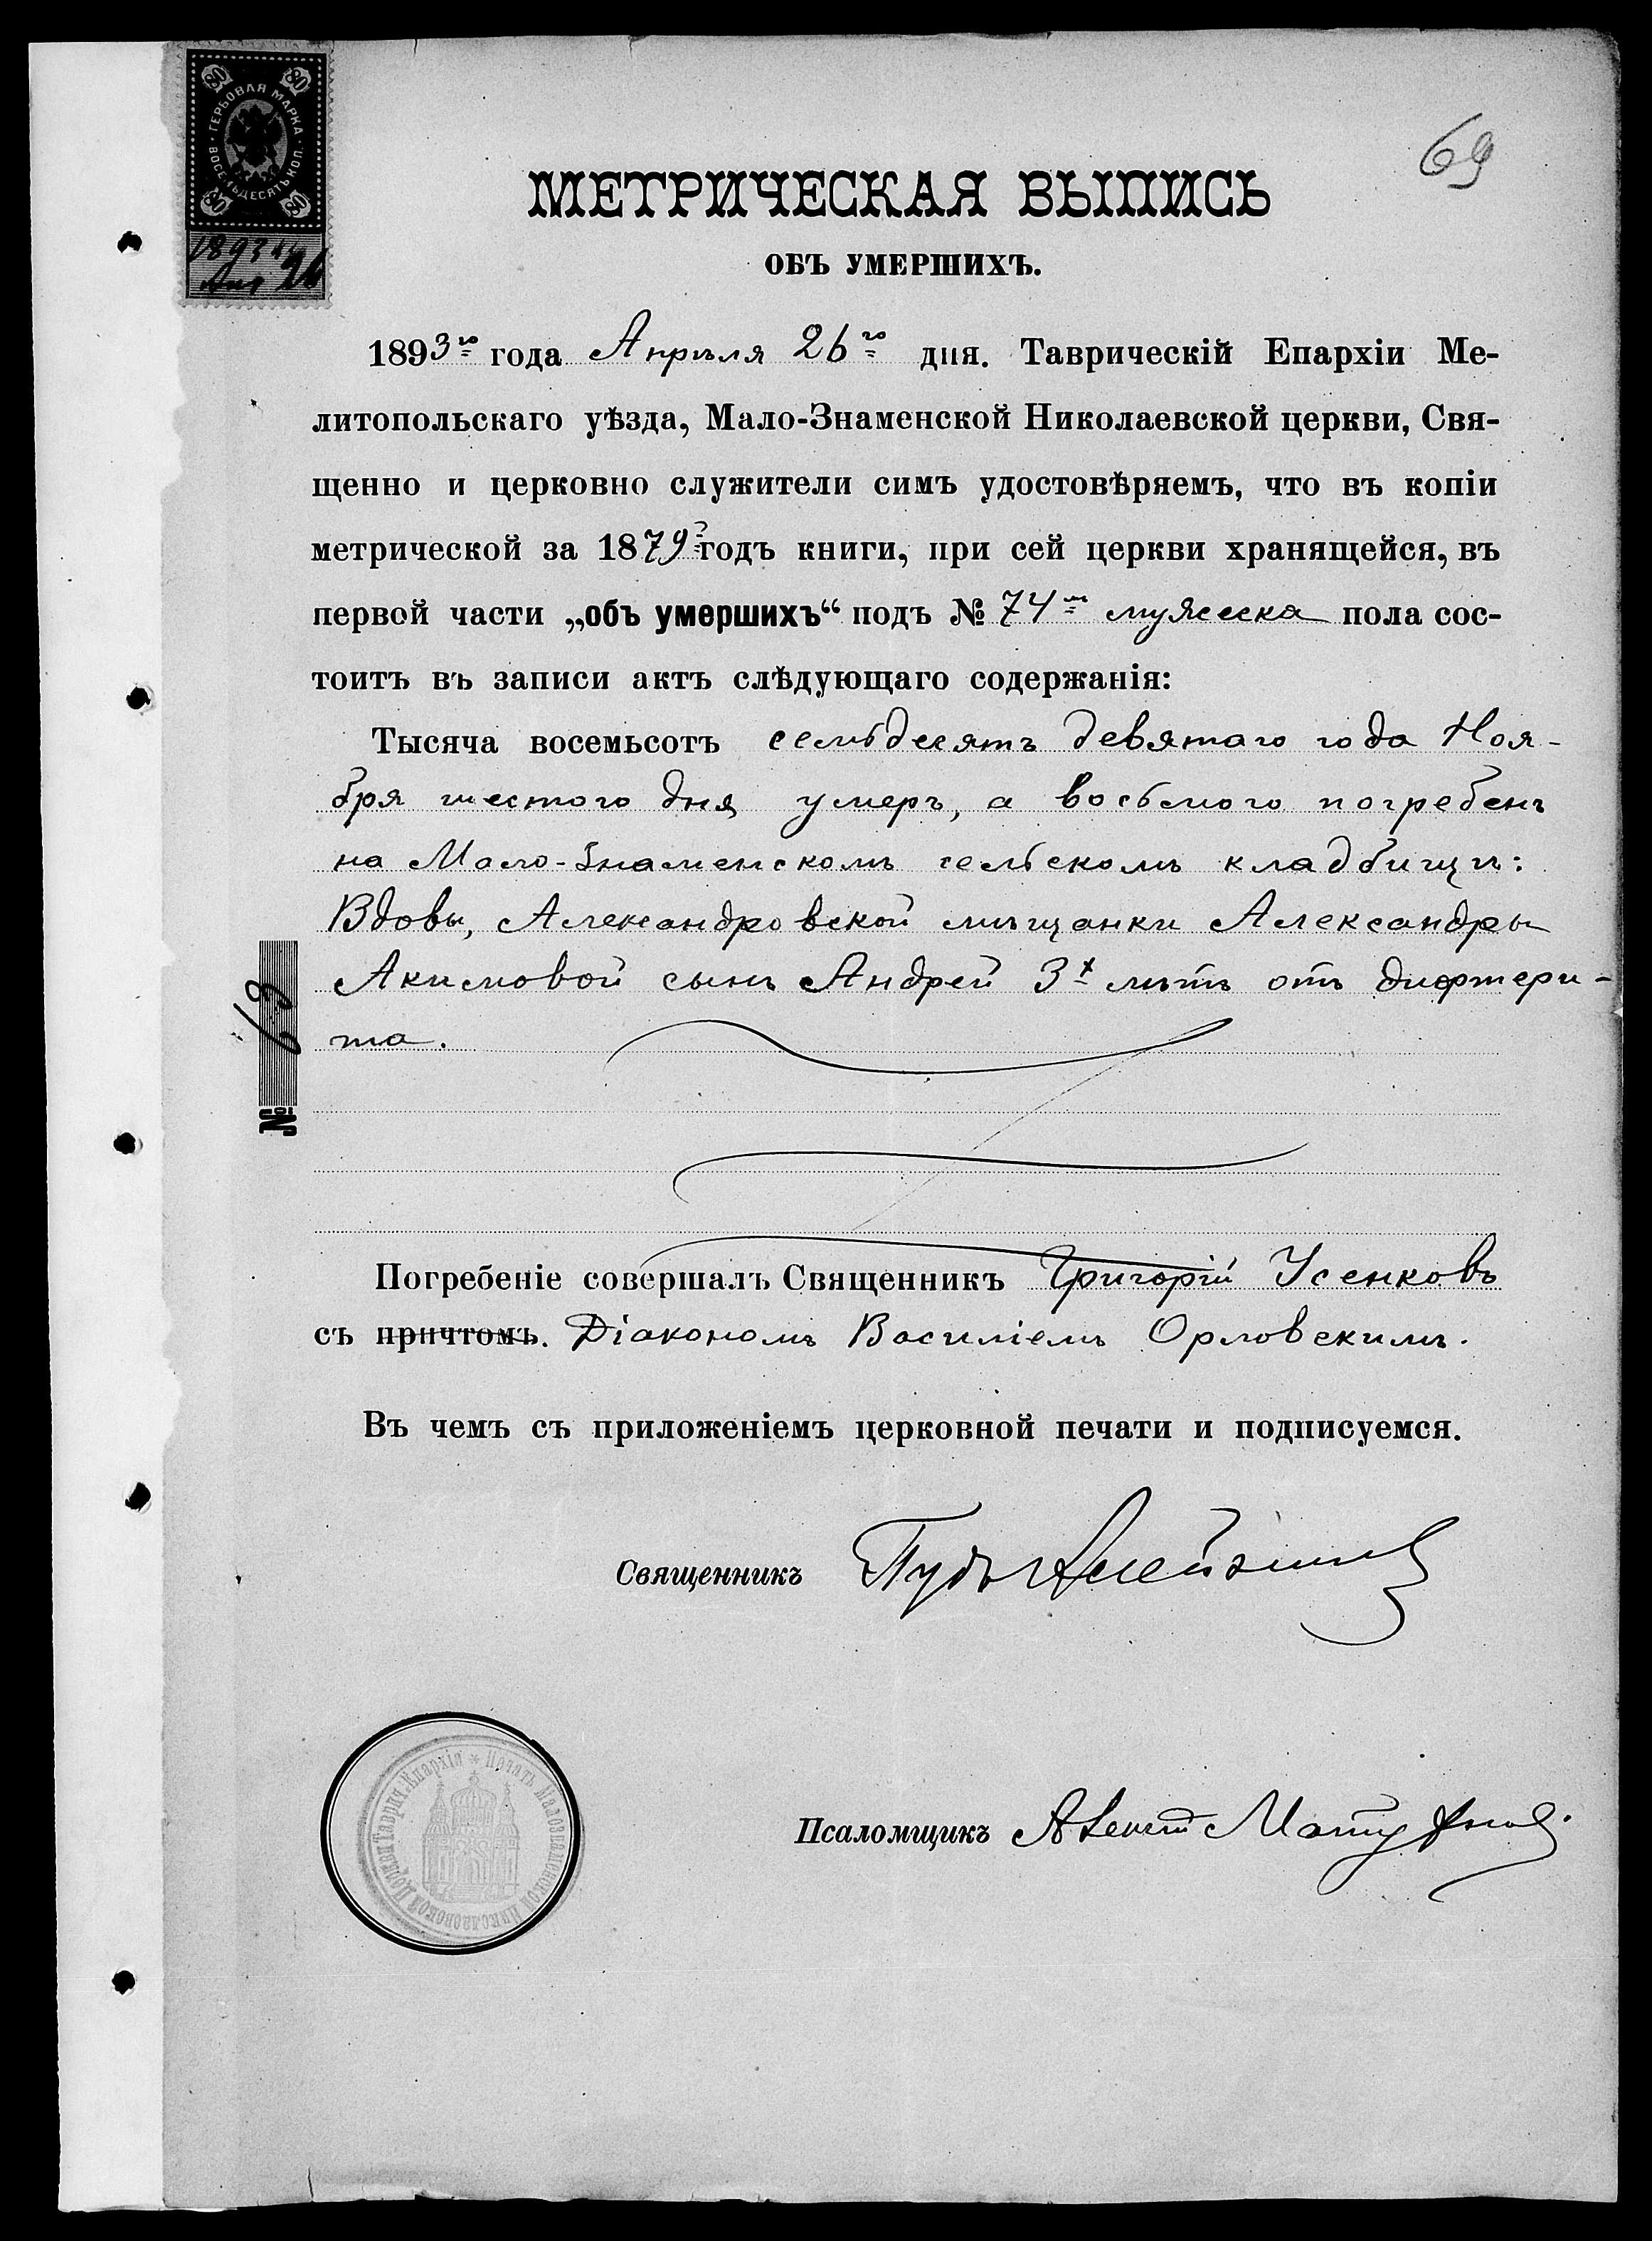 ГЕРБОВАЯ МАРКА
ВОСЕМЬДЕСЯТЬ КОП.
80 80
80 80
1893
69
МЕТРИЧЕСКАЯ ВЫПИСЬ
ОБЪ УМЕРШИХЪ.
1893го года Апрѣля 26го дня. Таврическій Епархіи Ме-
литопольскаго уѣзда, Мало-Знаменской Николаевской церкви, Свя-
щенно и церковно служители симъ удостовѣряемъ, что въ копіи
метрической за 1879й годъ книги, при сей церкви хранящейся, въ
первой части „объ умершихъ“ подъ № 74м мужеска пола сос-
тоитъ въ записи актъ слѣдующаго содержанія:
Тысяча восемьсотъ семьдесятъ девятаго года Ноя-
бря шестого дня умеръ, а восьмого погребенъ
на Мало-Знаменскомъ сельскомъ кладбищѣ:
Вдовы, Александровской мѣщанки Александры
Акимовой сынъ Андрей 3х лѣтъ отъ дифтери-
та.
№ 63
Погребеніе совершалъ Священникъ Григорій Усенковъ
съ причтомъ. Діакономъ Василіемъ Орловскимъ.
Въ чемъ съ приложеніемъ церковной печати и подписуемся.
Священникъ
Псаломщикъ
Печать Малознаменской Николаевской Церкви Таврич. Епархія